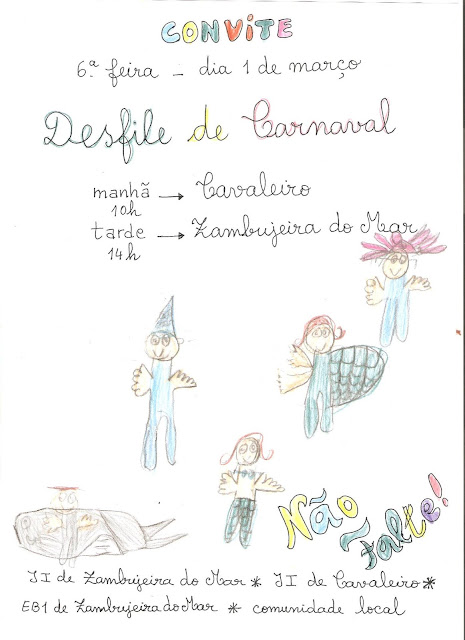 CONVITE
6.ª feira - dia 1 de março
Desfile de Carnaval
manhã → Cavaleiro
10h
tarde → Zambujeira do Mar
14h
Não
falte!
JI de Zambujeira do Mar * JI de Cavaleiro *
EB1 de Zambujeira do Mar * comunidade local